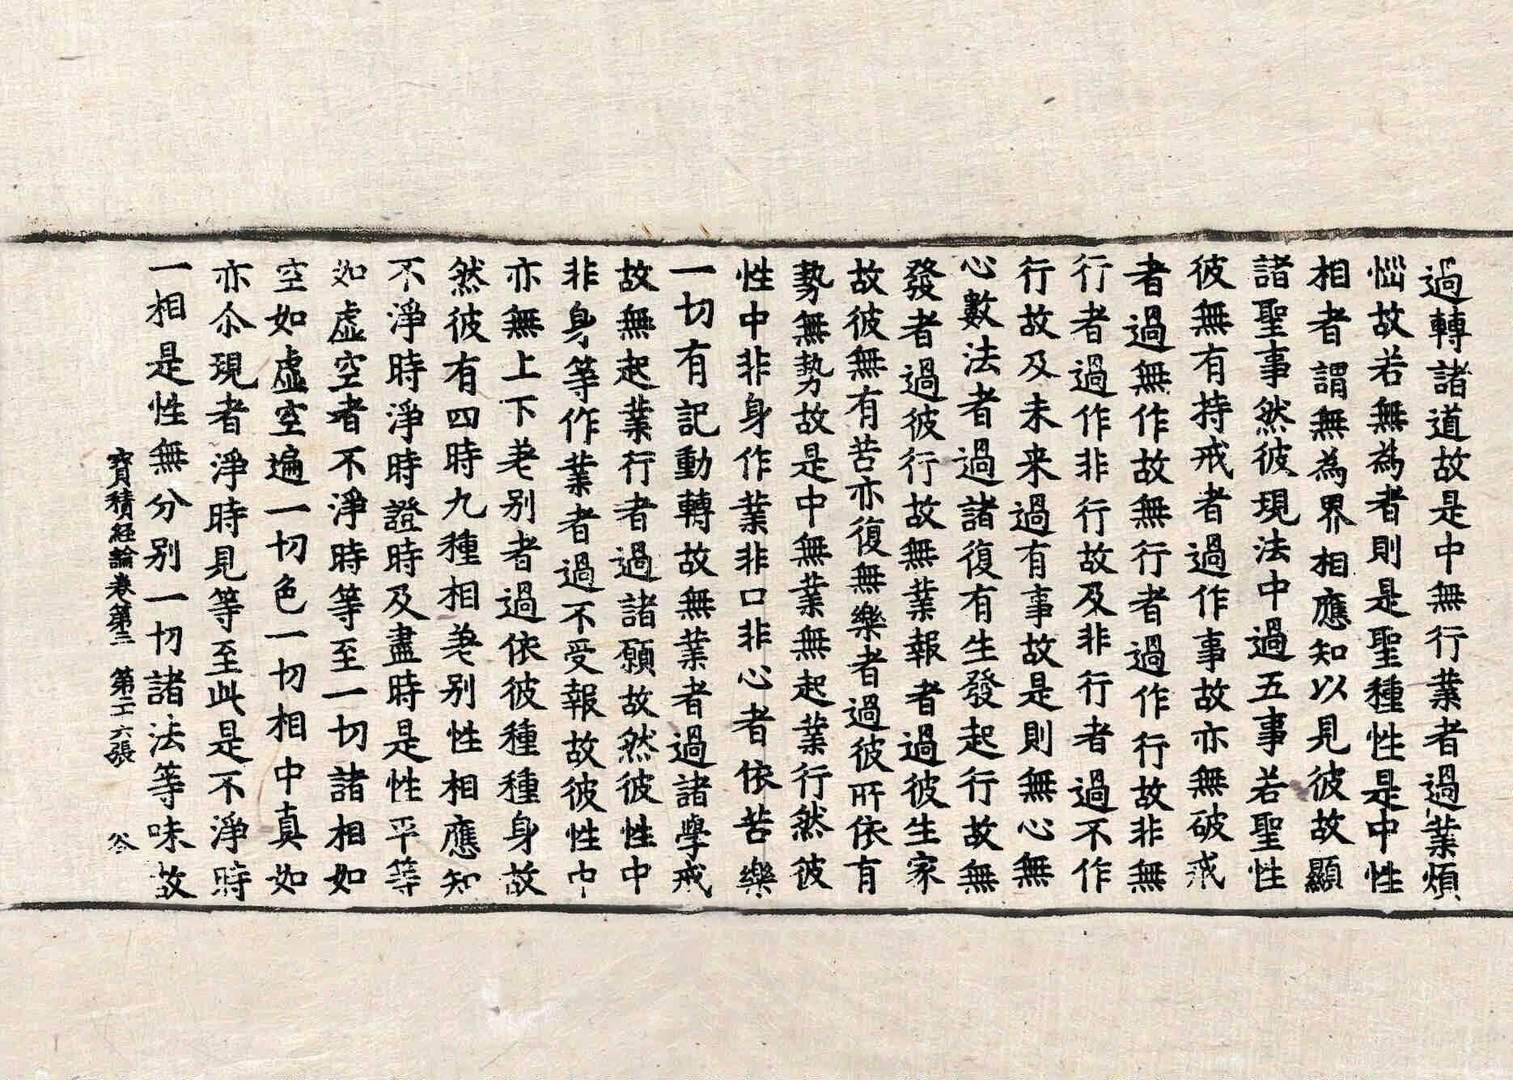 過轉諸道故是中無行業者過業煩
惱故若無為者則是聖種性是中性
相者謂無為界相應知以見彼故顯
諸聖事然彼現法中過五事若聖性
彼無有持戒者過作事故亦無破戒
者過無作故無行者過作行故非無
行者過作非行故及非行者過不作
行故及未来過有事故是則無心無
心數法者過諸復有生發起行故無
發者過彼行故無業報者過彼生家
故彼無有苦亦復無樂者過彼所依有
勢無勢故是中無業無起業行然彼
性中非身作業非口非心者依苦樂
一切有記動轉故無業者過諸學戒
故無起業行者過諸願故然彼性中
非身等作業者過不受報故彼性中
亦無上下差别者過依彼種種身故
然彼有四時九種相差别性相應知
不淨時淨時證時及盡時是性平等
如虛空者不淨時等至一切諸相如
空如虛空遍一切色一切相中真如
亦尒現者淨時見等至此是不淨時
一相是性無分别一切諸法等味故
寳積經論卷第三 第二六張